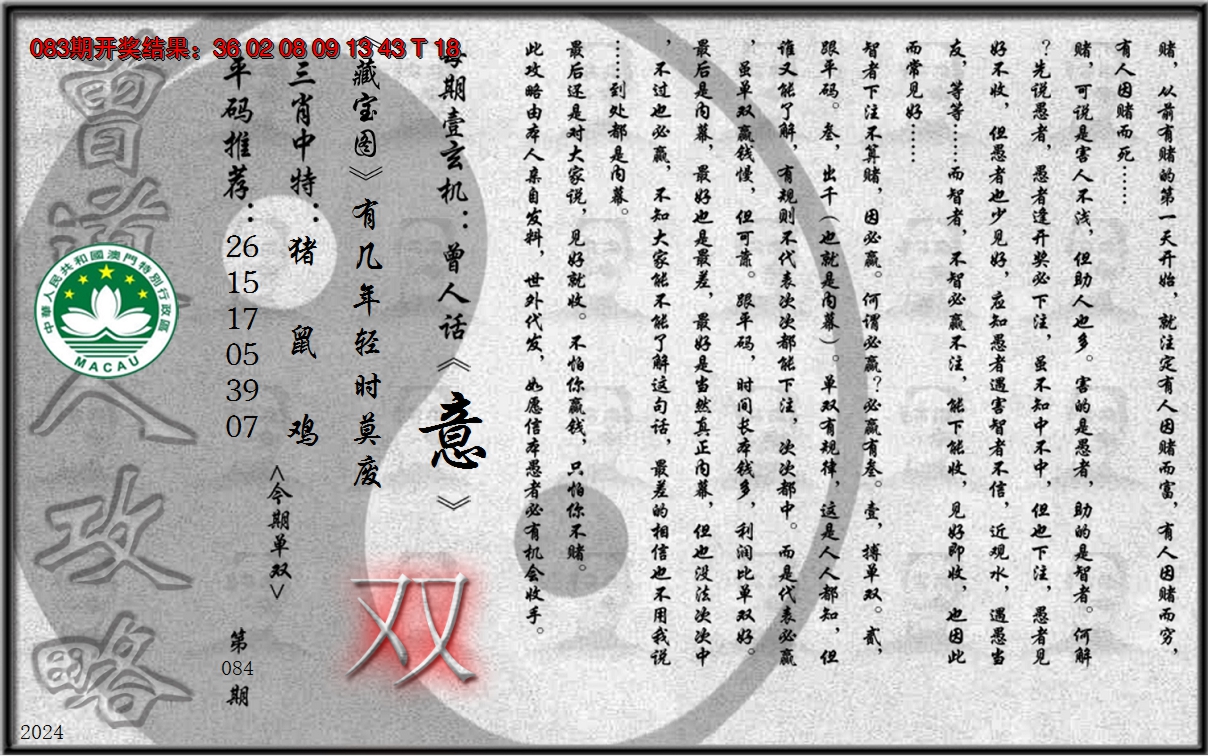 083期开奖结果：36 02 08 09 13 43 T 18
赌，从前有赌的第一天开始，就注定有人因赌而富，有人因赌而穷，
有人因赌而死……
赌，可说是害人不浅，但助人也多。害的是愚者，助的是智者。何解
？先说愚者，愚者逢开奖必下注，虽不知中不中，但也下注，愚者见
好不收，但愚者也少见好，应知愚者遇害智者不信，近观水，遇愚当
友，等等……而智者，不智必赢不注，能下能收，见好即收，也因此
而常见好……
智者下注不算赌，因必赢。何谓必赢？必赢有叁。壹，搏单双。贰，
跟平码。叁，出千（也就是内幕）。单双有规律，这是人人都知，但
谁又能了解，有规则不代表次次都能下注，次次都中。而是代表必赢
，虽单双赢钱慢，但可靠。跟平码，时间长本钱多，利润比单双好。
最后是内幕，最好也是最差，最好是当然真正内幕，但也没法次次中
，不过也必赢，不知大家能不能了解这句话，最差的相信也不用我说
……到处都是内幕。
最后还是对大家说，见好就收。不怕你赢钱，只怕你不赌。
此攻略由本人亲自发料，世外代发，如愿信本愚者必有机会收手。
每期壹玄机：曾人话《意》
《藏宝图》有几年轻时莫废
双
三肖中特：猪 鼠 鸡
<今期单双>
平码推荐：26 15 17 05 39 07
第084期
曾道人攻略
中華人民共和國澳門特別行政區
MACAU
2024